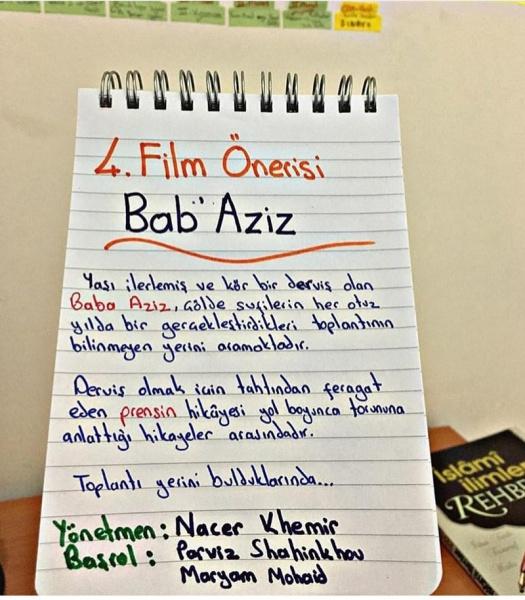 4. Film Önerisi
Bab' Aziz
Yaşı ilerlemiş ve kör bir derviş olan
Baba Aziz, çölde sufilerin her otuz
yılda bir gerçekleştirdikleri toplantının
bilinmeyen yerini aramaktadır.
Derviş olmak için tahtından feragat
eden prensin hikâyesi yol boyunca torununa
anlattığı hikayeler arasındadır.
Toplantı yerini bulduklarında...
Yönetmen: Nacer Khemir
Başrol: Parviz Shahinkhou
Maryam Mohaid
İslâmi
ilimler
REHBE